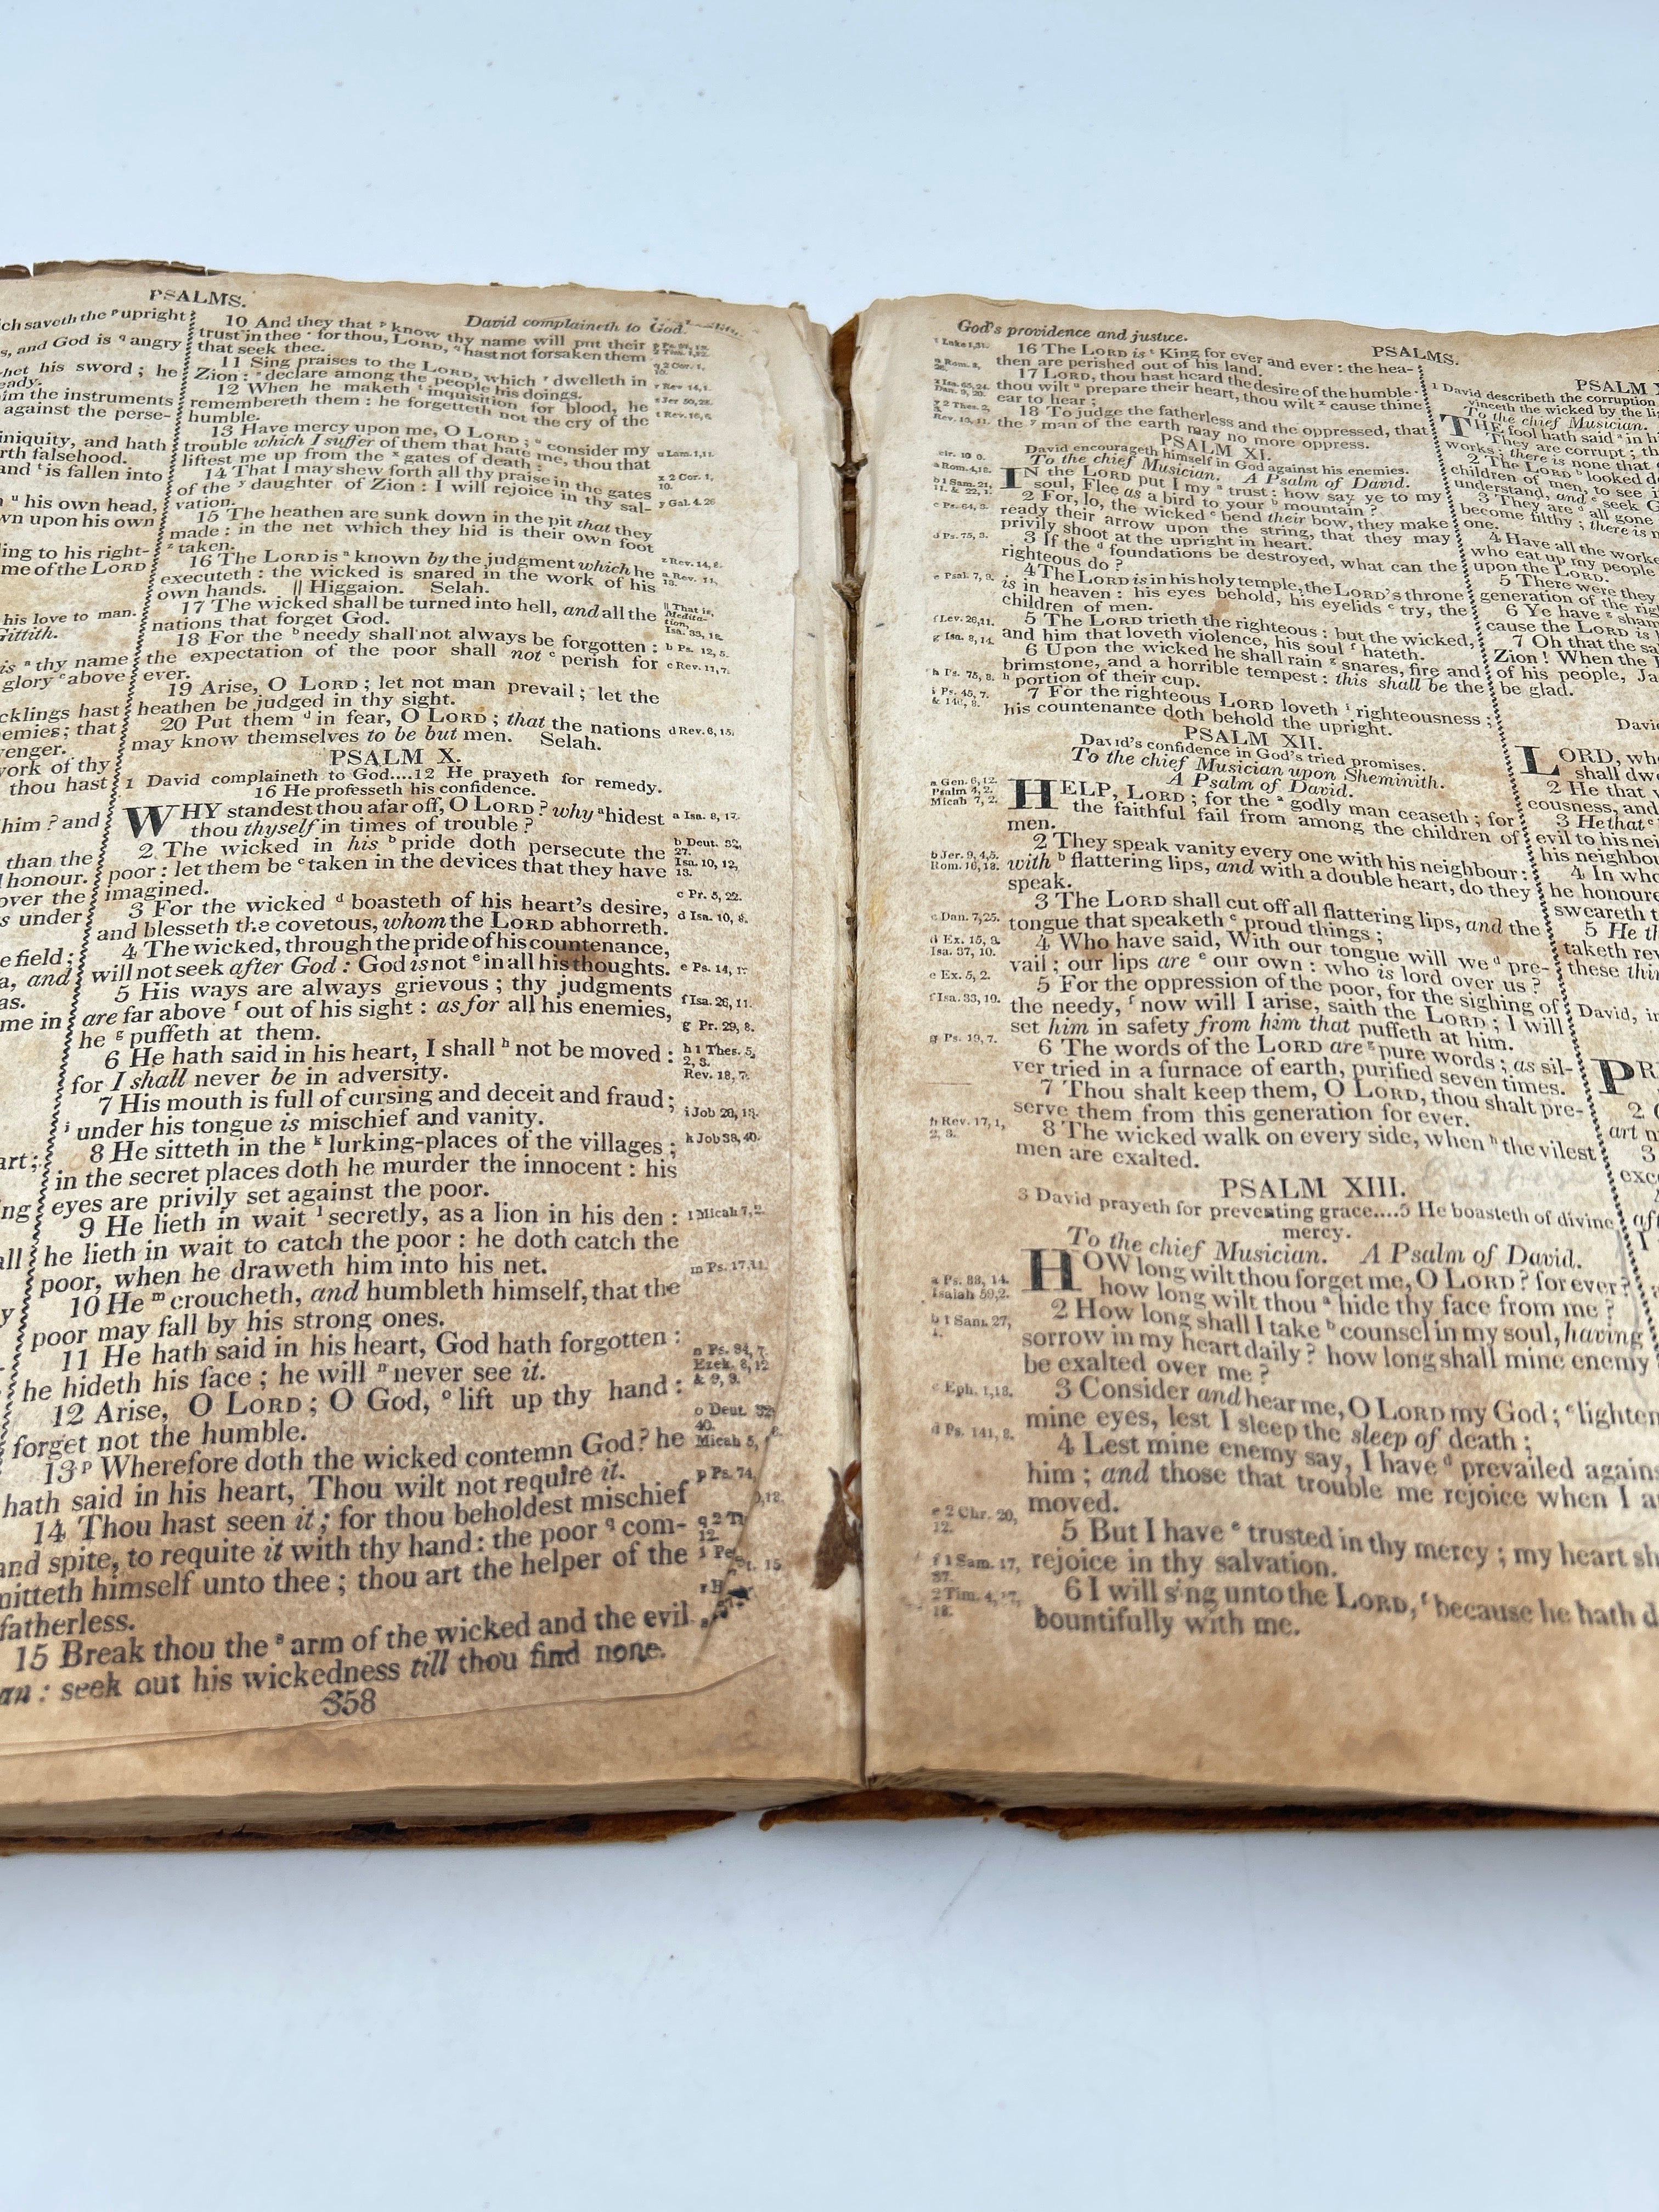 PSALMS.
David complaineth to God.
ich saveth the ᵖ upright
s, and God is ᑫ angry
het his sword; he
eady.
im the instruments
against the perse-
iniquity, and hath
rth falsehood.
and ᵗ is fallen into
ⁿ his own head,
wn upon his own
ing to his right-
me of the LORD
his love to man.
Gittith.
is ᵃ thy name
glory ᶜ above
cklings hast
emies; that
venger.
work of thy
thou hast
him? and
than the
honour.
over the
s under
e field;
a, and
as.
me in
art;
ng
all
y
10 And they that ᵖ know thy name will put their
trust in thee: for thou, LORD, ᑫ hast not forsaken them
that seek thee.
11 Sing praises to the LORD, which ʳ dwelleth in
Zion: ˢ declare among the people his doings.
12 When he maketh ᵗ inquisition for blood, he
remembereth them: he forgetteth not the cry of the
humble.
13 Have mercy upon me, O LORD; ᵘ consider my
trouble which I suffer of them that hate me, thou that
liftest me up from the ˣ gates of death:
14 That I may shew forth all thy praise in the gates
of the ʸ daughter of Zion: I will rejoice in thy sal-
vation.
15 The heathen are sunk down in the pit that they
made: in the net which they hid is their own foot
ᶻ taken.
16 The LORD is ᵃ known by the judgment which he
executeth: the wicked is snared in the work of his
own hands. || Higgaion. Selah.
17 The wicked shall be turned into hell, and all the
nations that forget God.
18 For the ᵇ needy shall not always be forgotten:
the expectation of the poor shall not ᶜ perish for
ever.
19 Arise, O LORD; let not man prevail; let the
heathen be judged in thy sight.
20 Put them ᵈ in fear, O LORD; that the nations
may know themselves to be but men. Selah.
PSALM X.
1 David complaineth to God....12 He prayeth for remedy.
16 He professeth his confidence.
WHY standest thou afar off, O LORD? why ᵃ hidest
thou thyself in times of trouble?
2 The wicked in his ᵇ pride doth persecute the
poor: let them be ᶜ taken in the devices that they have
imagined.
3 For the wicked ᵈ boasteth of his heart's desire,
and blesseth the covetous, whom the LORD abhorreth.
4 The wicked, through the pride of his countenance,
will not seek after God: God is not ᵉ in all his thoughts.
5 His ways are always grievous; thy judgments
are far above ᶠ out of his sight: as for all his enemies,
he ᵍ puffeth at them.
6 He hath said in his heart, I shall ʰ not be moved:
for I shall never be in adversity.
7 His mouth is full of cursing and deceit and fraud;
ⁱ under his tongue is mischief and vanity.
8 He sitteth in the ᵏ lurking-places of the villages;
in the secret places doth he murder the innocent: his
eyes are privily set against the poor.
9 He lieth in wait ˡ secretly, as a lion in his den:
he lieth in wait to catch the poor: he doth catch the
poor, when he draweth him into his net.
10 He ᵐ croucheth, and humbleth himself, that the
poor may fall by his strong ones.
11 He hath said in his heart, God hath forgotten:
he hideth his face; he will ⁿ never see it.
12 Arise, O LORD; O God, ᵒ lift up thy hand:
forget not the humble.
13 ᵖ Wherefore doth the wicked contemn God? he
hath said in his heart, Thou wilt not require it.
14 Thou hast seen it; for thou beholdest mischief
and spite, to requite it with thy hand: the poor ᑫ com-
mitteth himself unto thee; thou art the helper of the
fatherless.
15 Break thou the ˢ arm of the wicked and the evil
an: seek out his wickedness till thou find none.
358
q 2 Cor. 1,
10.
r Rev 14, 1.
s Jer 50, 28.
t Rev. 16, 6.
u Lam. 1, 11.
x 2 Cor. 1,
10.
y Gal. 4. 26
z Rev. 14, 8.
a Rev. 11,
13.
|| That is,
Medita-
tion,
Isa. 33, 18.
b Ps. 12, 5.
c Rev. 11, 7.
d Rev. 6, 15.
a Isa. 8, 17.
b Deut. 32,
27.
Isa. 10, 12,
13.
c Pr. 5, 22.
d Isa. 10, 8.
e Ps. 14, 1.
f Isa. 26, 11.
g Pr. 29, 8.
h 1 Thes. 5,
2, 3.
Rev. 18, 7.
i Job 20, 12.
k Job 38, 40.
l Micah 7, 2.
m Ps. 17, 11.
n Ps. 94, 7.
Ezek. 8, 12
& 9, 9.
o Deut. 32,
40.
Micah 5,
p Ps. 74,
q 2 Ti
12.
God's providence and justice.
PSALMS.
16 The LORD is ᵗ King for ever and ever: the hea-
then are perished out of his land.
17 LORD, thou hast heard the desire of the humble:
thou wilt ᵘ prepare their heart, thou wilt ˣ cause thine
ear to hear;
18 To judge the fatherless and the oppressed, that
the ʸ man of the earth may no more oppress.
PSALM XI.
David encourageth himself in God against his enemies.
To the chief Musician. A Psalm of David.
IN the LORD put I my ᵃ trust: how say ye to my
soul, Flee as a bird to your ᵇ mountain?
2 For, lo, the wicked ᶜ bend their bow, they make
ready their arrow upon the string, that they may
privily shoot at the upright in heart.
3 If the ᵈ foundations be destroyed, what can the
righteous do?
4 The LORD is in his holy temple, the LORD's throne
is in heaven: his eyes behold, his eyelids ᵉ try, the
children of men.
5 The LORD trieth the righteous: but the wicked,
and him that loveth violence, his soul ᶠ hateth.
6 Upon the wicked he shall rain ᵍ snares, fire and
brimstone, and a horrible tempest: this shall be the
ʰ portion of their cup.
7 For the righteous LORD loveth ⁱ righteousness;
his countenance doth behold the upright.
PSALM XII.
David's confidence in God's tried promises.
To the chief Musician upon Sheminith.
A Psalm of David.
HELP, LORD; for the ᵃ godly man ceaseth; for
the faithful fail from among the children of
men.
2 They speak vanity every one with his neighbour:
with ᵇ flattering lips, and with a double heart, do they
speak.
3 The LORD shall cut off all flattering lips, and the
tongue that speaketh ᶜ proud things;
4 Who have said, With our tongue will we ᵈ pre-
vail; our lips are ᵉ our own: who is lord over us?
5 For the oppression of the poor, for the sighing of
the needy, ᶠ now will I arise, saith the LORD; I will
set him in safety from him that puffeth at him.
6 The words of the LORD are ᵍ pure words; as sil-
ver tried in a furnace of earth, purified seven times.
7 Thou shalt keep them, O LORD, thou shalt pre-
serve them from this generation for ever.
8 The wicked walk on every side, when ʰ the vilest
men are exalted.
PSALM XIII.
3 David prayeth for preventing grace....5 He boasteth of divine
mercy.
To the chief Musician. A Psalm of David.
HOW long wilt thou forget me, O LORD? for ever?
how long wilt thou ᵃ hide thy face from me?
2 How long shall I take ᵇ counsel in my soul, having
sorrow in my heart daily? how long shall mine enemy
be exalted over me?
3 Consider and hear me, O LORD my God; ᶜ lighten
mine eyes, lest I sleep the sleep of death;
4 Lest mine enemy say, I have ᵈ prevailed agains
him; and those that trouble me rejoice when I a
moved.
5 But I have ᵉ trusted in thy mercy; my heart sh
rejoice in thy salvation.
6 I will sing unto the LORD, ᶠ because he hath d
bountifully with me.
t Luke 1, 31.
x Isa. 65, 24.
Dan. 9, 20.
y 2 Thes. 2,
a Rom. 4, 18.
b 1 Sam. 21,
11. & 22, 1.
c Ps. 64, 3.
d Ps. 75, 3.
e Psal. 7, 9.
f Lev. 26, 11.
g Isa. 8, 14.
h Ps. 75, 8.
i Ps. 45, 7.
& 146, 8.
a Gen. 6, 12.
Psalm 4, 2.
Micah 7, 2.
b Jer. 9, 4, 5.
Rom. 16, 18.
c Dan. 7, 25.
d Ex. 15, 9.
Isa. 37, 10.
e Ex. 5, 2.
f Isa. 33, 10.
g Ps. 19, 7.
h Rev. 17, 1,
2, 3.
a Ps. 88, 14.
Isaiah 59, 2.
b 1 Sam. 27,
1.
c Eph. 1, 18.
d Ps. 141, 8.
e 2 Chr. 20,
12.
f 1 Sam. 17,
37.
2 Tim. 4, 17,
18.
PSALM X
1 David describeth the corruption
vinceth the wicked by the li
To the chief Musician.
THE fool hath said ᵃ in hi
They are corrupt; th
works; there is none that
2 The LORD ᵇ looked do
children of men, to see i
understand, and ᶜ seek G
3 They are ᵈ all gone
become filthy; there is n
one.
4 Have all the worke
who eat up my people
upon the LORD.
5 There were they
generation of the rig
6 Ye have ᵉ sham
cause the LORD is
7 Oh that the sa
Zion! When the
of his people, Ja
be glad.
Davi
LORD, who
shall dwe
2 He that
ousness, and
3 He that ᶜ
evil to his nei
his neighbou
4 In who
he honoure
sweareth t
5 He th
taketh rev
these thin
David, in
PRE
2 O
art n
3
exce
4
aft